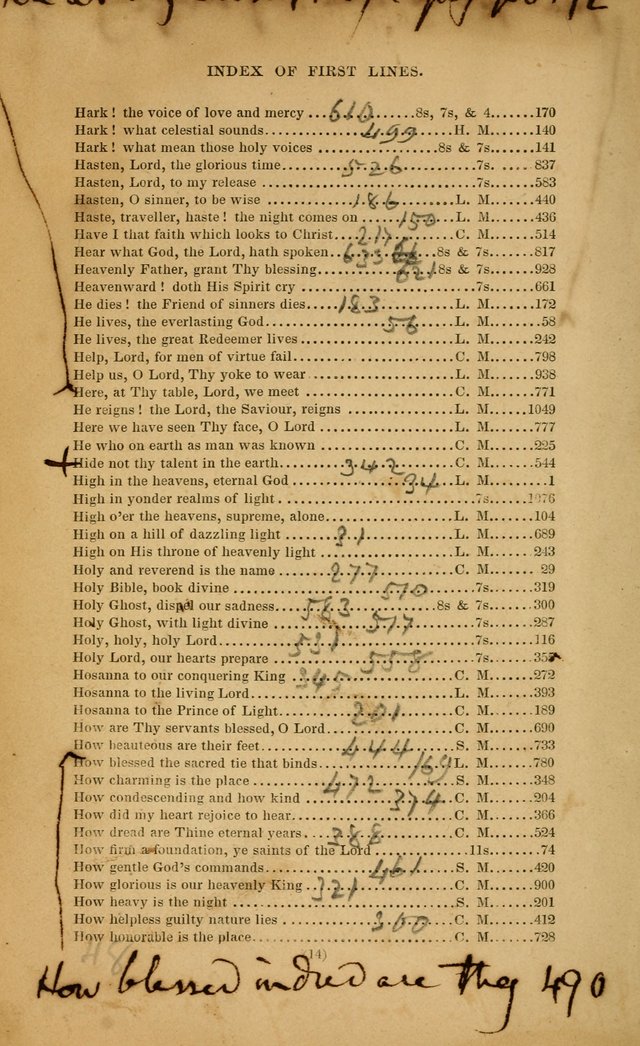 INDEX OF FIRST LINES.
Hark! the voice of love and mercy ... 610 ... 8s, 7s, & 4.......170
Hark! what celestial sounds ... 499 ... H. M.......140
Hark! what mean those holy voices ... 8s & 7s.......141
Hasten, Lord, the glorious time ... 526 ... 7s. ...... 837
Hasten, Lord, to my release ... 7s.......583
Hasten, O sinner, to be wise ... 186 ... L. M.......440
Haste, traveller, haste! the night comes on ... 150 ... L. M.......436
Have I that faith which looks to Christ ... 217 ... C. M.......514
Hear what God, the Lord, hath spoken ... 633 ... 8s & 7s.......817
Heavenly Father, grant Thy blessing ... 621 8s & 7s.......928
Heavenward! doth His Spirit cry ... 7s.......661
He dies! the Friend of sinners dies ... 183 ... L. M.......172
He lives, the everlasting God ... 56 ... L. M.......58
He lives, the great Redeemer lives ... L. M.......242
Help, Lord, for men of virtue fail ... C. M.......798
Help us, O Lord, Thy yoke to wear ... L. M.......938
Here, at Thy table, Lord, we meet ... C. M.......771
He reigns! the Lord, the Saviour, reigns ... L. M.......1049
Here we have seen Thy face, O Lord ... L. M.......777
He who on earth as man was known ... C. M.......225
Hide not thy talent in the earth ... 342 ... C. M.......544
High in the heavens, eternal God ... 34 ... L. M.......1
High in yonder realms of light ... 7s.......1076
High o'er the heavens, supreme, alone ... L. M.......104
High on a hill of dazzling light ... 31 ... L. M.......689
High on His throne of heavenly light ... L. M.......243
Holy and reverend is the name ... 277 ... C. M.......29
Holy Bible, book divine ... 510 ... 7s.......319
Holy Ghost, dispel our sadness ... 583 ... 8s & 7s.......300
Holy Ghost, with light divine ... 517 ... 7s.......287
Holy, holy, holy Lord ... 531 ... 7s.......116
Holy Lord, our hearts prepare ... 558 ... 7s.......357
Hosanna to our conquering King ... 345 ... C. M.......272
Hosanna to the living Lord ... L. M.......393
Hosanna to the Prince of Light ... 201 ... C. M.......189
How are Thy servants blessed, O Lord ... C. M.......690
How beauteous are their feet ... 444 ... S. M.......733
How blessed the sacred tie that binds ... 169 L. M.......780
How charming is the place ... 472 ... S. M.......348
How condescending and how kind ... 374 ... C. M.......204
How did my heart rejoice to hear ... C. M.......366
How dread are Thine eternal years ... 388 ... C. M.......524
How firm a foundation, ye saints of the Lord ... 11s.......74
How gentle God's commands ... 461 ... S. M.......420
How glorious is our heavenly King ... 321 ... C. M.......900
How heavy is the night ... S. M.......201
How helpless guilty nature lies ... 300 ... C. M.......412
How honorable is the place ... C. M.......728
14)
How blessed indeed are they 490